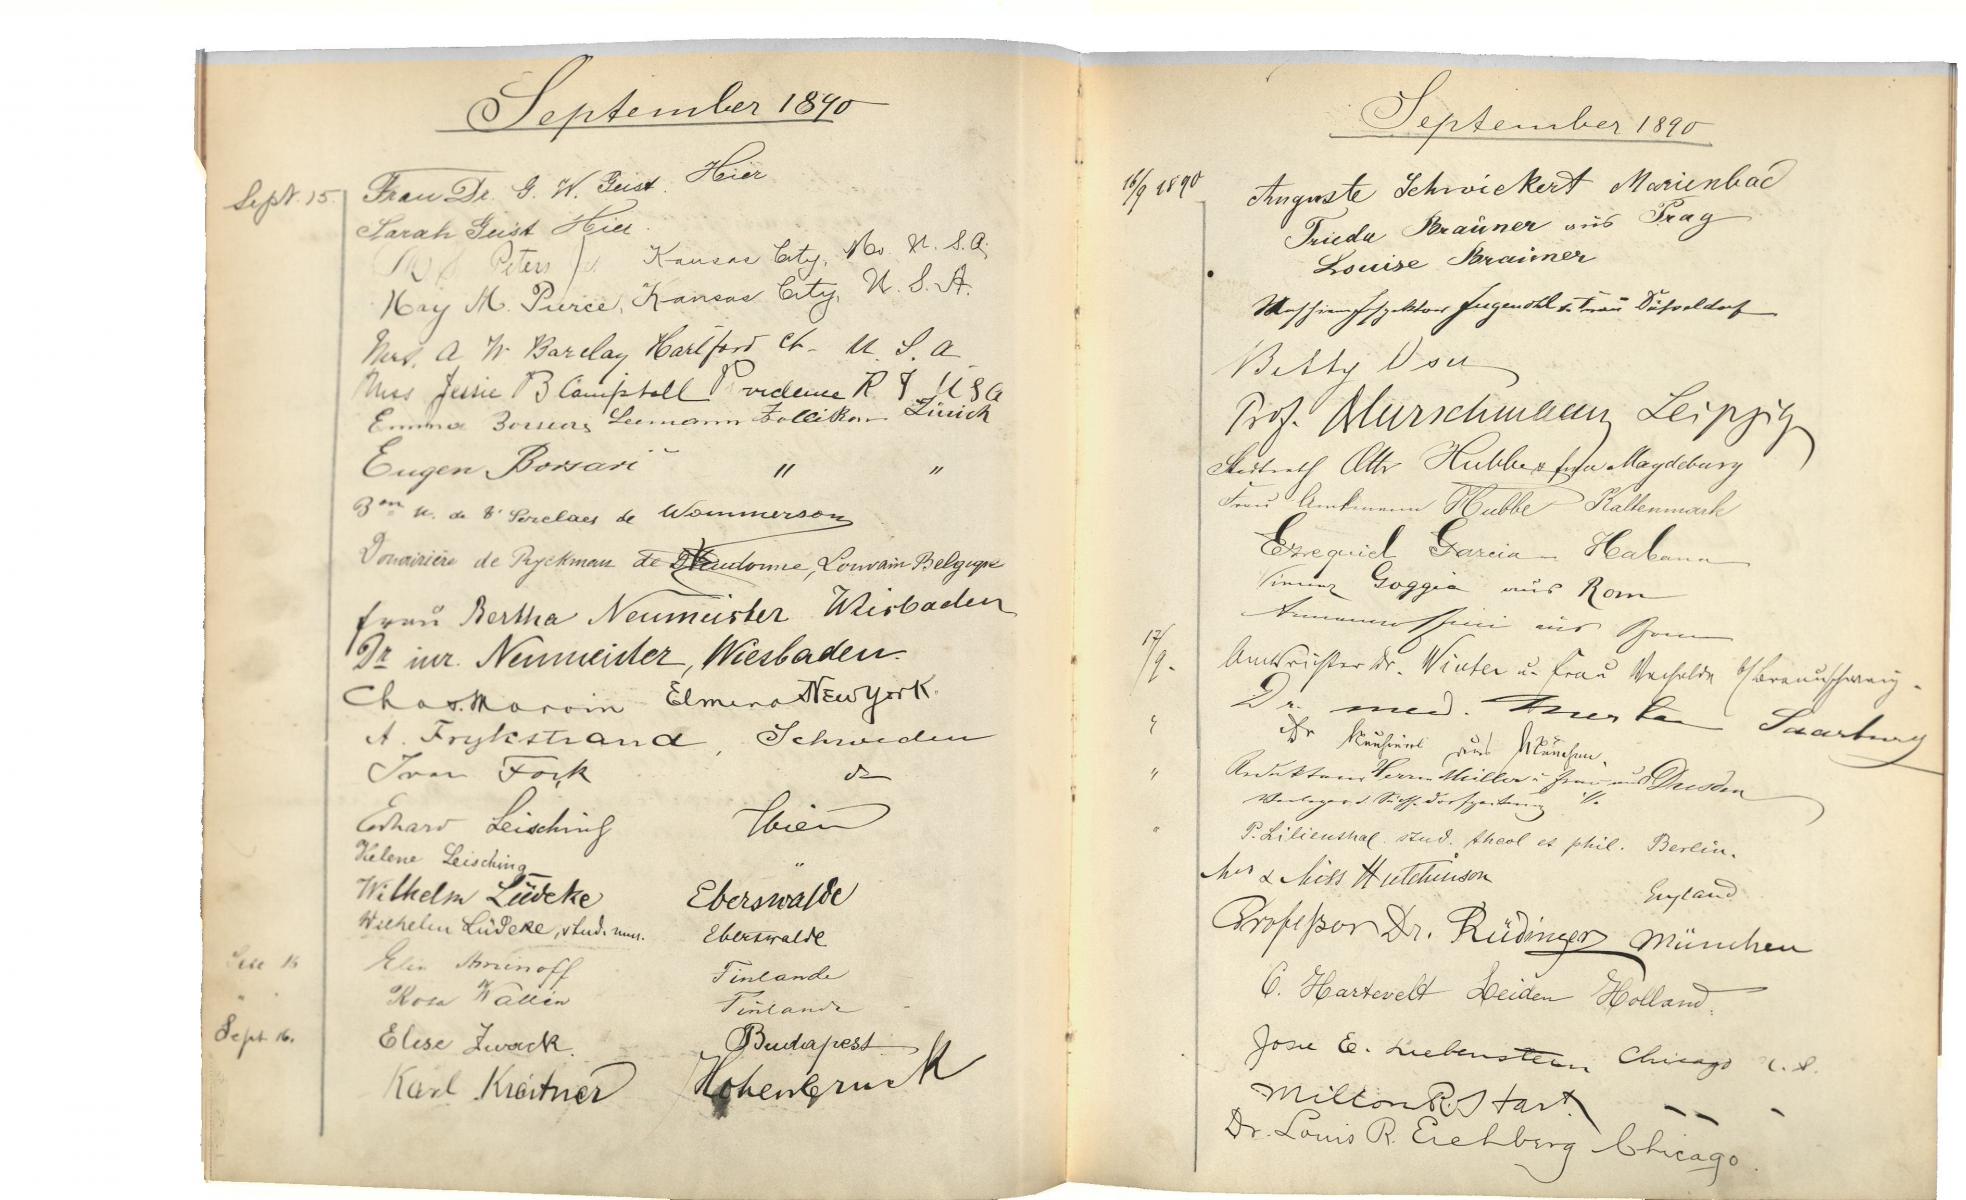 September 1890
Sept. 15. Frau Dr. G. W. Geist. Hier
Sarah Geist Hier.
Peters Kansas City, Mo. U.S.A.
May M. Pierce, Kansas City, U.S.A.
Mrs. A W Barclay Hartford Ct. U.S.A
Miss Jessie B Campbell Providence R I USA
Emma Leemann Zollikon Zürich
Eugen Borsari " "
Bon de t'Serclaes de Wommerson
Douairière de Ryckman de Louvain Belgique
Frau Bertha Neumeister Wiesbaden
Dr iur. Neumeister, Wiesbaden.
Chas. Marvin Elmira New York.
A. Frykstrand, Schweden
Ivar Fock do
Eduard Leisching Wien
Helene Leisching "
Wilhelm Lüdeke Eberswalde
Wilhelm Lüdeke, stud. Eberswalde
Elin Aminoff Finlande
" Rosa Wallin Finlande
Sept 16. Elise Zwack. Budapest
Karl Kreitner Hohenbruck
September 1890
16/9 1890 Auguste Schwickert Marienbad
Frieda Brauner aus Prag
Louise Brauner
Jugendhl u. Frau Düsseldorf
Betty
Prof. Leipzig
Stadtrath Otto Hubbe u. Frau Magdeburg
Frau Amtmann Hubbe Kaltenmark
Ezequiel Garcia Habana
Goggia aus Rom
aus
17/9. Amtsrichter Dr. Winter u. Frau Vechelde b/Braunschweig.
" Dr. med. Saarburg
Dr aus München.
" Redakteur Herrn Müller u. Frau aus Dresden
Verleger d. Sächs. Dorfzeitung
" P. Lilienthal. stud. theol et phil. Berlin.
Mrs & Miss Hutchinson England
Professor Dr. Rüdinger München
C. Hartevelt Leiden Holland.
Josie E. Liebenstein Chicago U.S.
Milton R. Hart.
Dr. Louis R. Eichberg Chicago.